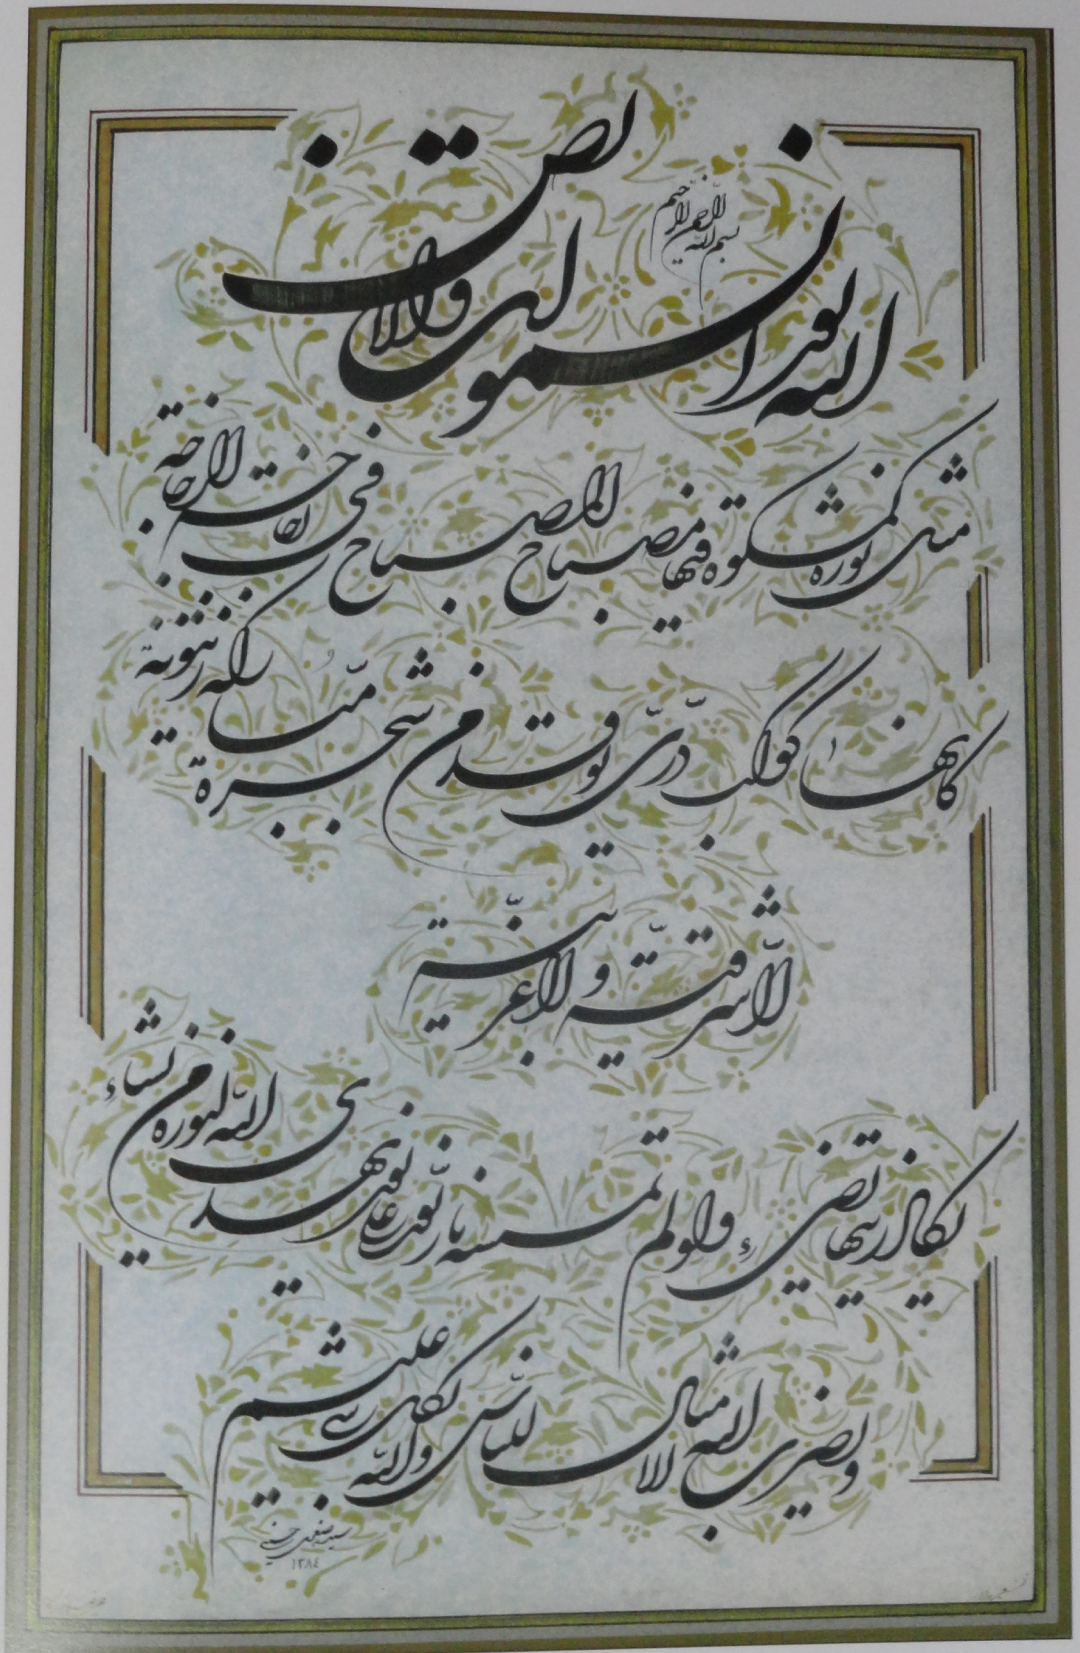 بسم الله الرحمن الرحیم
الله نور السموات والارض
مثل نوره کمشکوة فیها مصباح المصباح فی زجاجة الزجاجة
کانها کوکب درّیّ یوقد من شجرة مبارکة زیتونة
لا شرقیّة ولا غربیّة
یکاد زیتها یضیء ولو لم تمسسه نار نّور علی نور یهدی الله لنوره من یشاء
ویضرب الله الامثال للنّاس والله بکل شیء علیم
۱۳۸٤